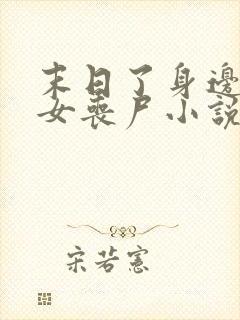 末日了身邊
女喪尸小說
宋若憲